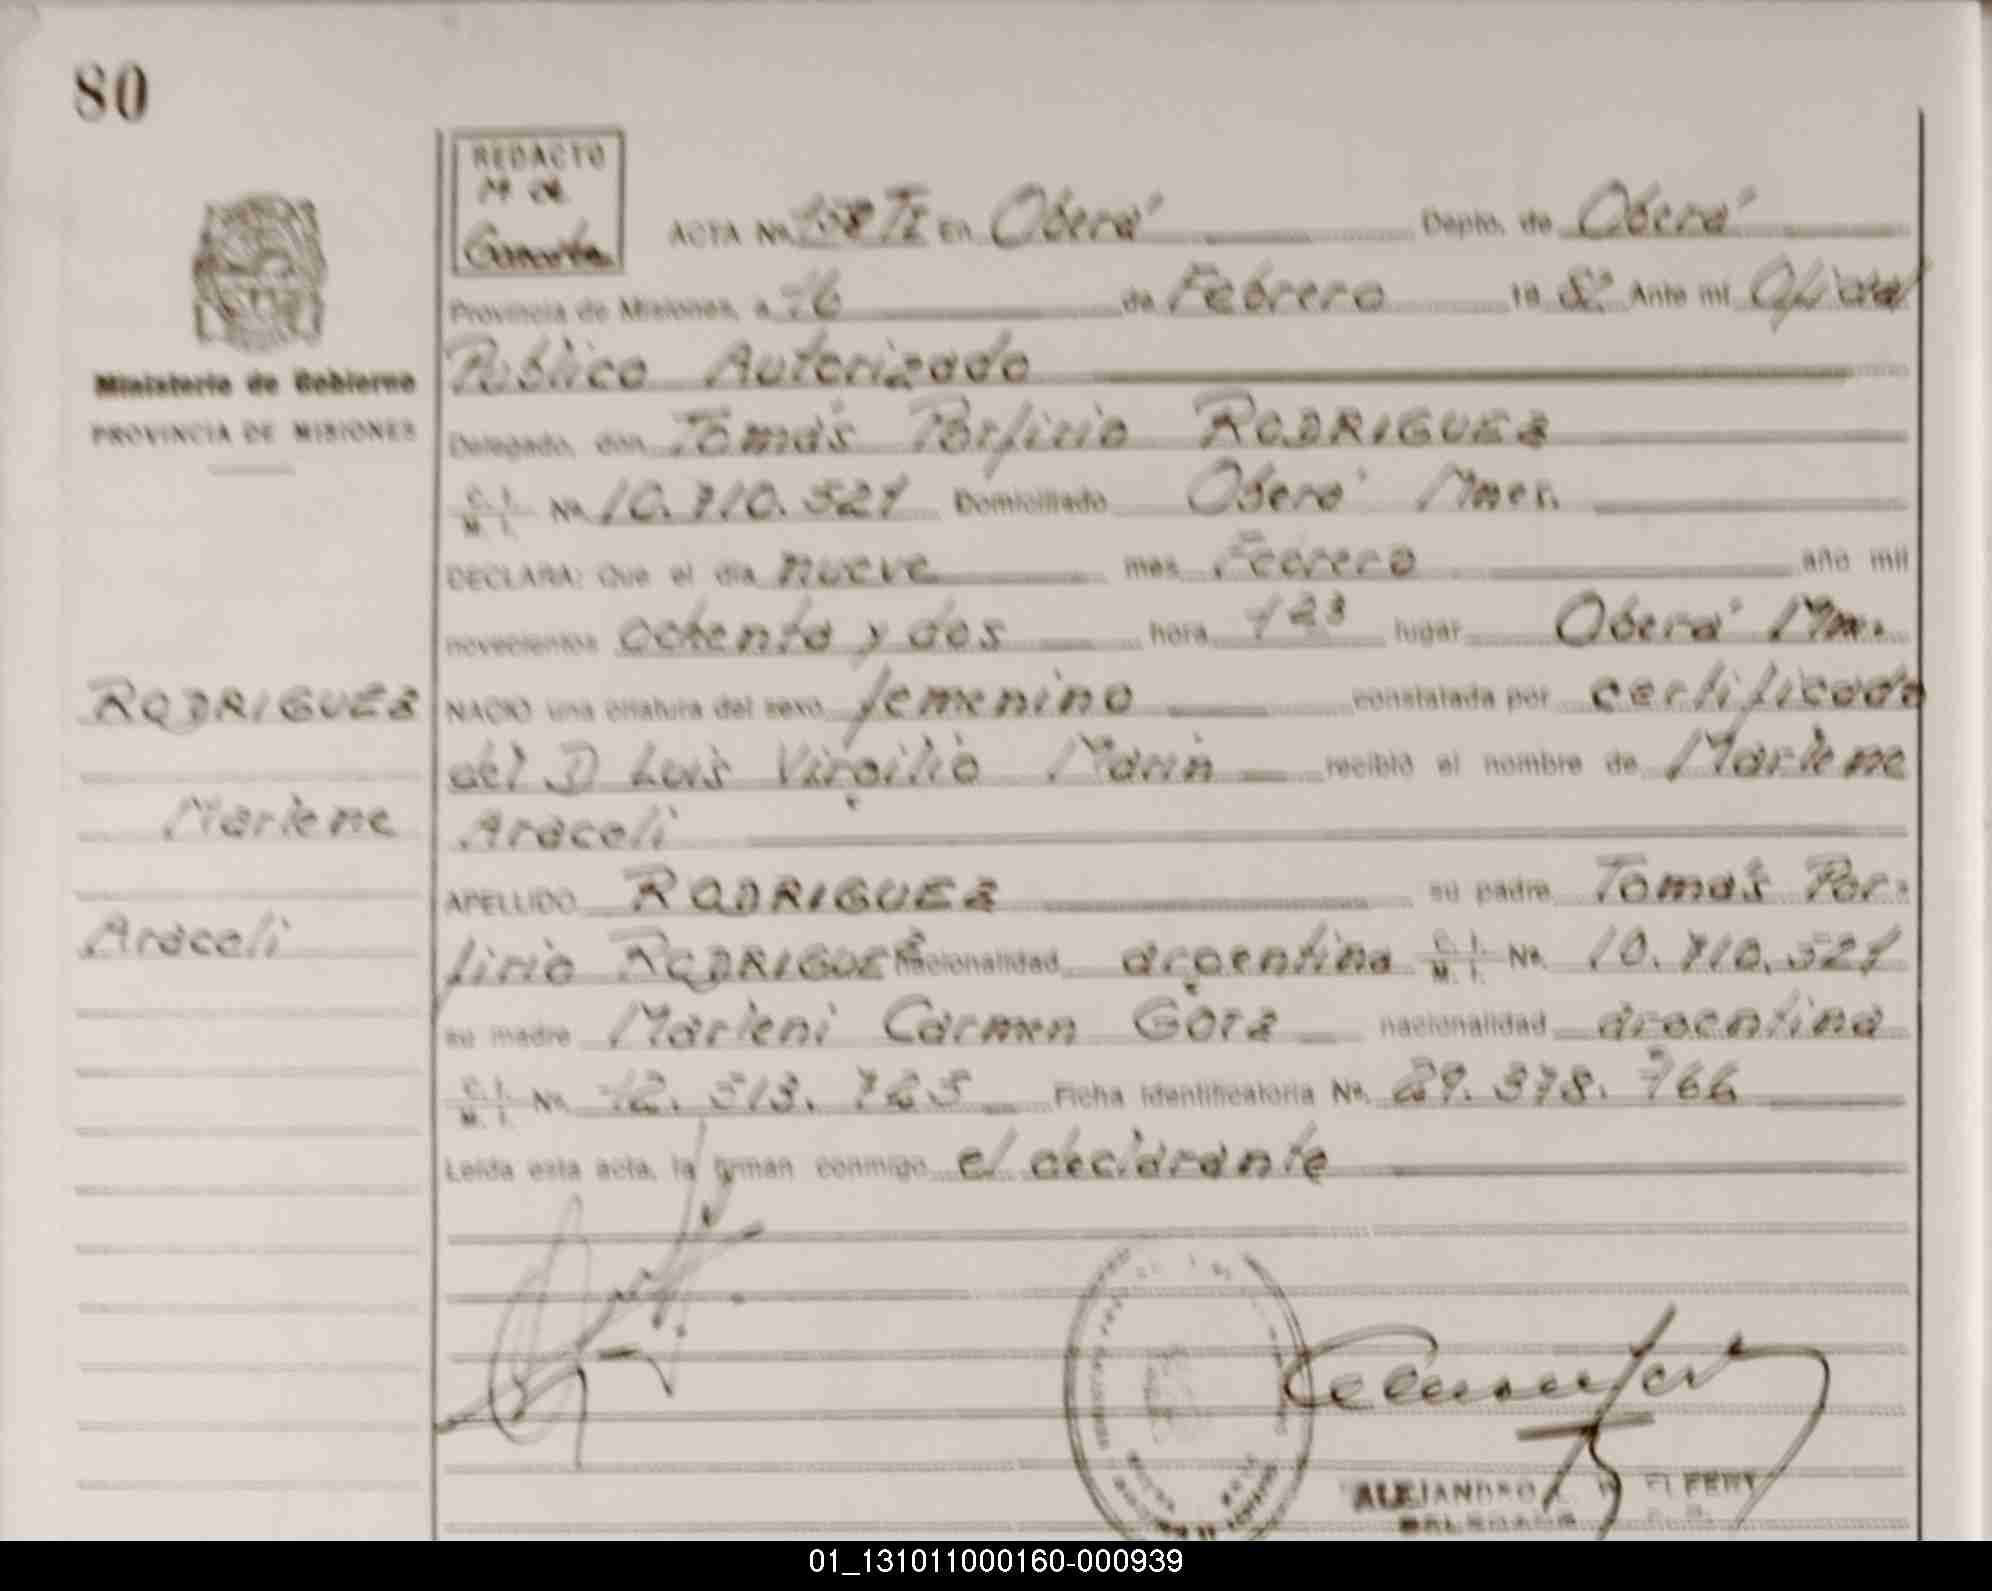 80
REDACTO
M de
ACTA Nº 108 TI En Oberá Depto. de Oberá
Provincia de Misiones, a 16 de Febrero 19 82 Ante mi Oficial
Público Autorizado
Delegado, don Tomás Porfirio RODRIGUEZ
C. I.
M. I. Nº 10.710.521 Domiciliado Oberá Mnes.
DECLARA: Que el día nueve mes Febrero año mil
novecientos ochenta y dos hora lugar Oberá Mnes.
NACIO una criatura del sexo femenino constatada por certificado
del D Luis Virgilio Marin recibió el nombre de Marlene
Araceli
APELLIDO RODRIGUEZ su padre Tomás Por-
firio RODRIGUEZ nacionalidad argentina C. I. M. I. Nº 10.710.521
su madre Marleni Carmen Gorz nacionalidad argentina
C. I.
M. I. Nº 12.513.725 Ficha Identificatoria Nº 29.378.766
Leída esta acta, la firman conmigo el declarante
Ministerio de Gobierno
PROVINCIA DE MISIONES
RODRIGUEZ
Marlene
Araceli
ALEJANDRO
DELEGADO
01_131011000160-000939